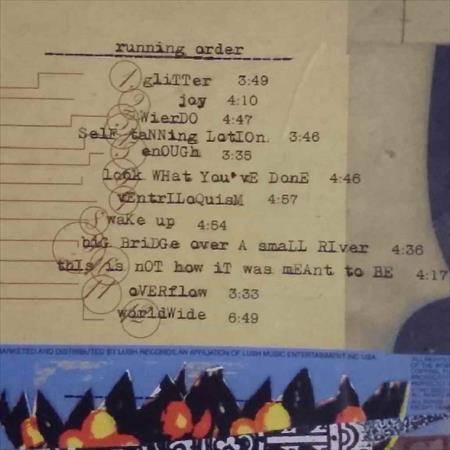 running order
1. gliTTer 3:49
2 joy 4:10
3 WierDO 4:47
SelF taNNing LotIOn 3:46
5 enOUGh 3:35
look WHat You'vE DonE 4:46
7 vEntrILoQuisM 4:57
8 waKe up 4:54
biG BriDGe over A smaLL RIver 4:36
thIs is nOT how iT was mEAnt to BE 4:17
11 oVERflow 3:33
12 worldWide 6:49
MARKETED AND DISTRIBUTED BY LUSH RECORDS, AN AFFILIATION OF LUSH MUSIC ENTERTAINMENT INC USA